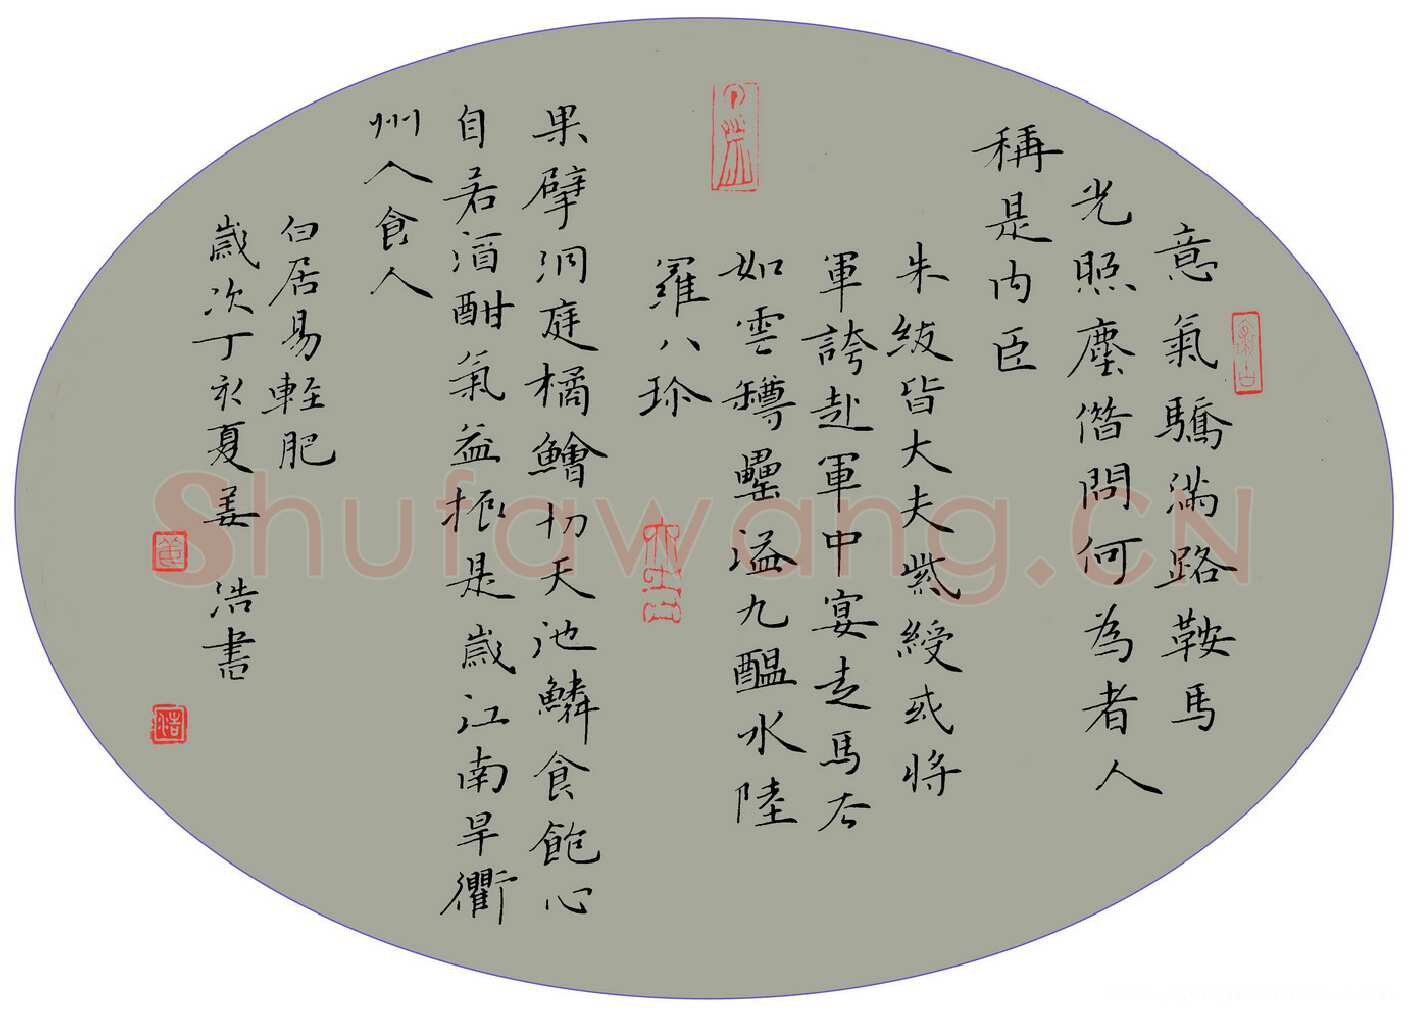 意氣驕滿路鞍馬
光照塵借問何為者人
稱是内臣
朱紱皆大夫紫綬或將
軍誇赴軍中宴走馬去
如雲罇罍溢九醖水陸
羅八珍
果擘洞庭橘鱠切天池鱗食飽心
自若酒酣氣益振是歲江南旱衢
州人食人
白居易輕肥
歲次丁亥夏姜浩書
浩
Shufawang.CN